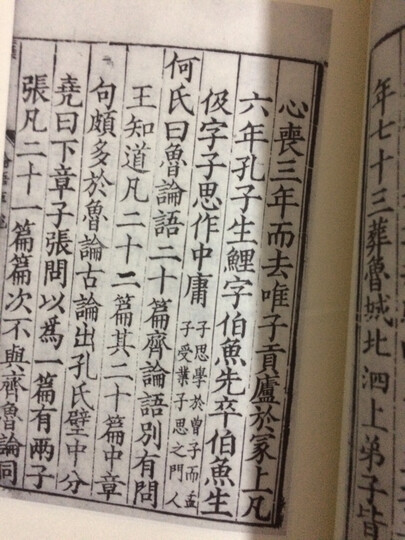 年七十三葬魯城北泗上弟子皆
心喪三年而去唯子貢廬於冢上凡
六年孔子生鯉字伯魚先卒伯魚生
伋字子思作中庸
子思學於曾子而孟
子受業子思之門人
何氏曰魯論語二十篇齊論語別有問
王知道凡二十二篇其二十篇中章
句頗多於魯論古論出孔氏壁中分
堯曰下章子張問以為一篇有兩子
張凡二十一篇篇次不與齊魯論同